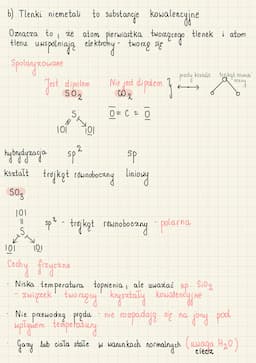 b) Tlenki niemetali to substancje kowalencyjne
Oznacza to, że atom pierwiastka tworzącego tlenek i atom
tlenu uwspólniają elektrony - tworzą się
Spolaryzowane
Jest dipolem Nie jest dipolem prosty kształt trójkąt równoboczny
SO2 CO2
S O = C = O
|O| |O|
hybrydyzacja sp² sp
kształt trójkąt równoboczny liniowy
SO3
|O|
S sp² - trójkąt równoboczny - polarna
|O| |O|
Cechy fizyczne
- Niska temperatura topnienia, ale uważać np. SiO2
- związek tworzący kryształy kowalencyjne
- Nie przewodzą prądu - nie rozpadają się na jony pod
wpływem temperatury
- Gazy lub ciała stałe w warunkach normalnych (uwaga H2O)
ciecz